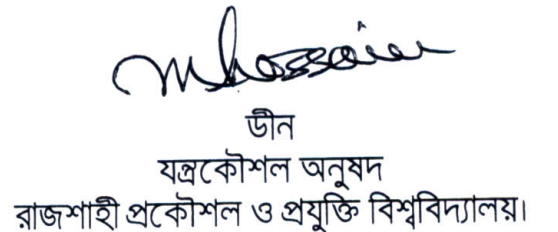 Mhossain
ডীন
যন্ত্রকৌশল অনুষদ
রাজশাহী প্রকৌশল ও প্রযুক্তি বিশ্ববিদ্যালয়।